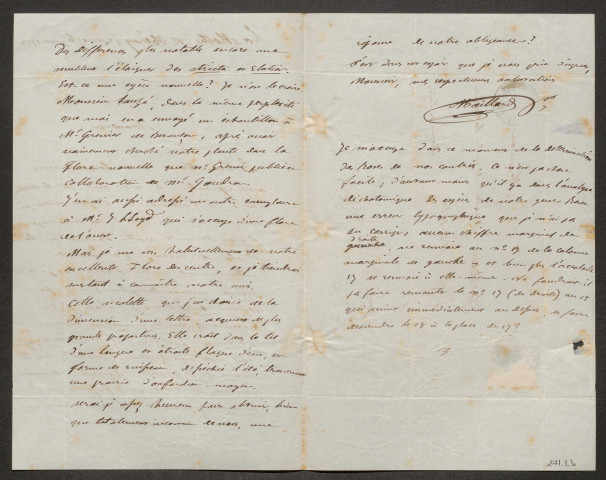 Des differences plus notable encore me
semblent l'éloigner des stricta et Elatior.
Est ce une espèce nouvelle? Je n'ose le croire
Monsieur Sauzé, dans la même perplexité
que moi, en a envoyé un échantillon à
Mr Grenier de Besançon, après avoir
vainement cherché notre plante dans la
flore nouvelle que Mr Grenier publie en
collaboration de Mr Godron.
J'en ai aussi adressé un autre exemplaire
à Mr J. Lloyd qui s'occupe d'une flore
de l'ouest.
Mais je me sers habituellement de votre
excellente Flore du centre, et je tiendrais
surtout à connaître votre avis.
Cette violette que j'ai choisie de la
dimension d'une lettre, acquiert de plus
grandes proportions. Elle croît dans le lit
d'une longue et étroite flaque d'eau, en
forme de ruisseau, desséché l'été, traversant
une prairie
serai-je assez heureux pour obtenir, bien
que totalement inconnu de vous, une
réponse de votre obligeance?
C'est dans cet espoir que je vous prie d'agréer,
Monsieur, mes respectueuses salutations
Maillard
Je m'occupe dans ce moment de la détermination
des Roses de nos contrées, ce n'est pas chose
facile, d'autant moins qu'il y a dans l'analyse
dichotomique des espèces de votre genre Rosa
une erreur typographique que je n'ai pu
corriger, aucun chiffre marginal de
droite
gauche, ne renvoie au no 19 de la colonne
marginale de gauche et bien plus l'accolade
17 se renvoie à elle même. Ne faudrait-il
pas faire remonter le no 17 (de droite) au 19
qui serait immédiatement au dessus, et faire
descendre le 19 à la place de 17?